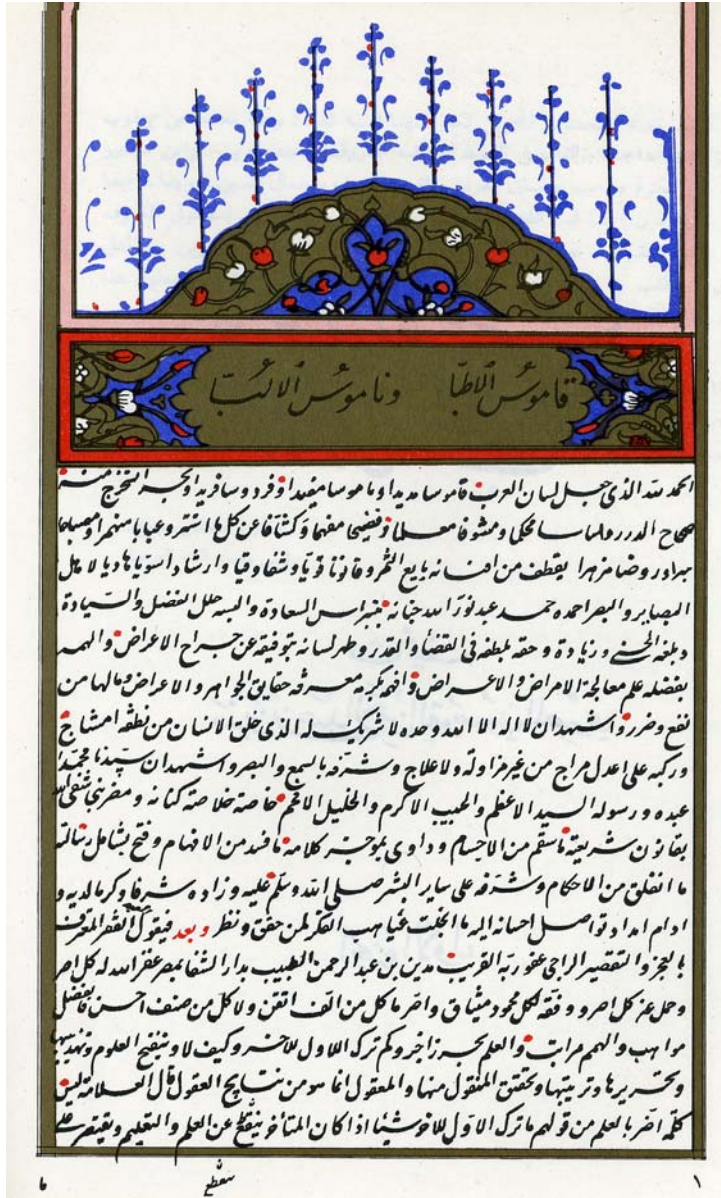 قاموس الاطبا وناموس الالبا
الحمد لله الذى جعل لسان العرب قاموسا مديدا وناموسا مفيدا وفردوسا فريدا والجم استخرج منه
صحاح الدرر والماسا محكما ومشوفا معلما وفضيحا مفهما وكشافا عن كل ما استتر وعبابا منهمرا ومصباحا
مبرادر وضا مزهرا يقطف من افنانه يانيع الثمر وقانونا قويا وشفا وقيا وارشادا سويا هاديا لا هل
البصاير والبصر احمده حمد عبد نور الله جنانه بنبراس السعادة والبسه حلل الفضل والسيادة
وبلغه الحسنى وزيادة وحفه بلطفه فى القضأ والقدر وطهر لسانه بتوفيقه عن جراح الاعراض والهمه
بفضله علم معالجة الامراض والاعراض وافهمه بكرمه معرفة حقايق الجواهر والاعراض ومالها من
نفع وضرر واشهد ان لا اله الا الله وحده لا شريك له الذى خلق الانسان من نطفه امشاج
وركبه على اعدل مزاج من غير مزاولة ولا علاج وشرفه بالسمع والبصر واشهد ان سيدنا محمدا
عبده ورسوله السيد الاعظم والحبيب الاكرم والخليل الافخم خاصة خلاصة كنانه ومضر نبى شفى الله
بقانون شريعته ما سقم من الاجسام وداوى بموجز كلامه ما فسد من الافهام وفتح بشامل رسالته
ما انغلق من الاحكام وشرفه على ساير البشر صلى الله وسلم عليه وزاده شرفا وكرما لديه و
ادام امداد تواصل احسانه اليه ما انجلت غياهب الفكر لمن حقق ونظر وبعد فيقول الفقير المعترف
بالعجز والتقصير الراجى عفو ربه القريب مدين بن عبد الرحمن الطبيب بدار الشفا بمصر غفر الله له كل اصر
وحل عنه كل اصر ووفقه لكل محمود ميثاق واصر ما كل من الف اتقن ولا كل من صنف احسن فالفضل
مواهب والهمم مراتب والعلم بحر زاخر وكم ترك الاول للاخر وكيف لا وتنقيح العلوم وتهذيبها
وتحريرها وترتيبها وتحقق المنقول منها والمعقول انما هو من نتايج العقول قال العلامة ليس
كلمة اضر بالعلم من قولهم ما ترك الاول للاخر شيئا اذا كان المتأخر ينقطع عن العلم والتعليم ويقتصر على
ينقطع
١